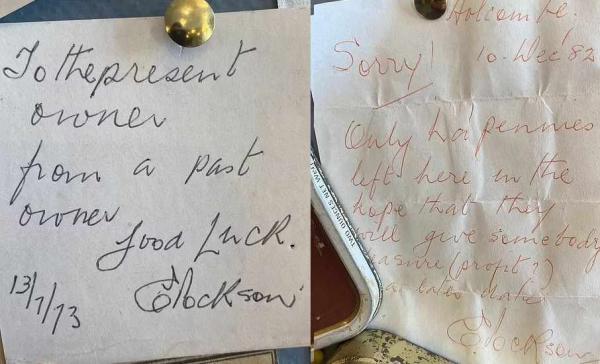 To the present
owner
from a past
owner
Good Luck.
13/7/73
Holcombe.
10 Dec '82
Sorry!
Only ha'pennies
left here in the
hope that they
will give somebody
(profit?)
TWO OUNCES NET WEIGHT